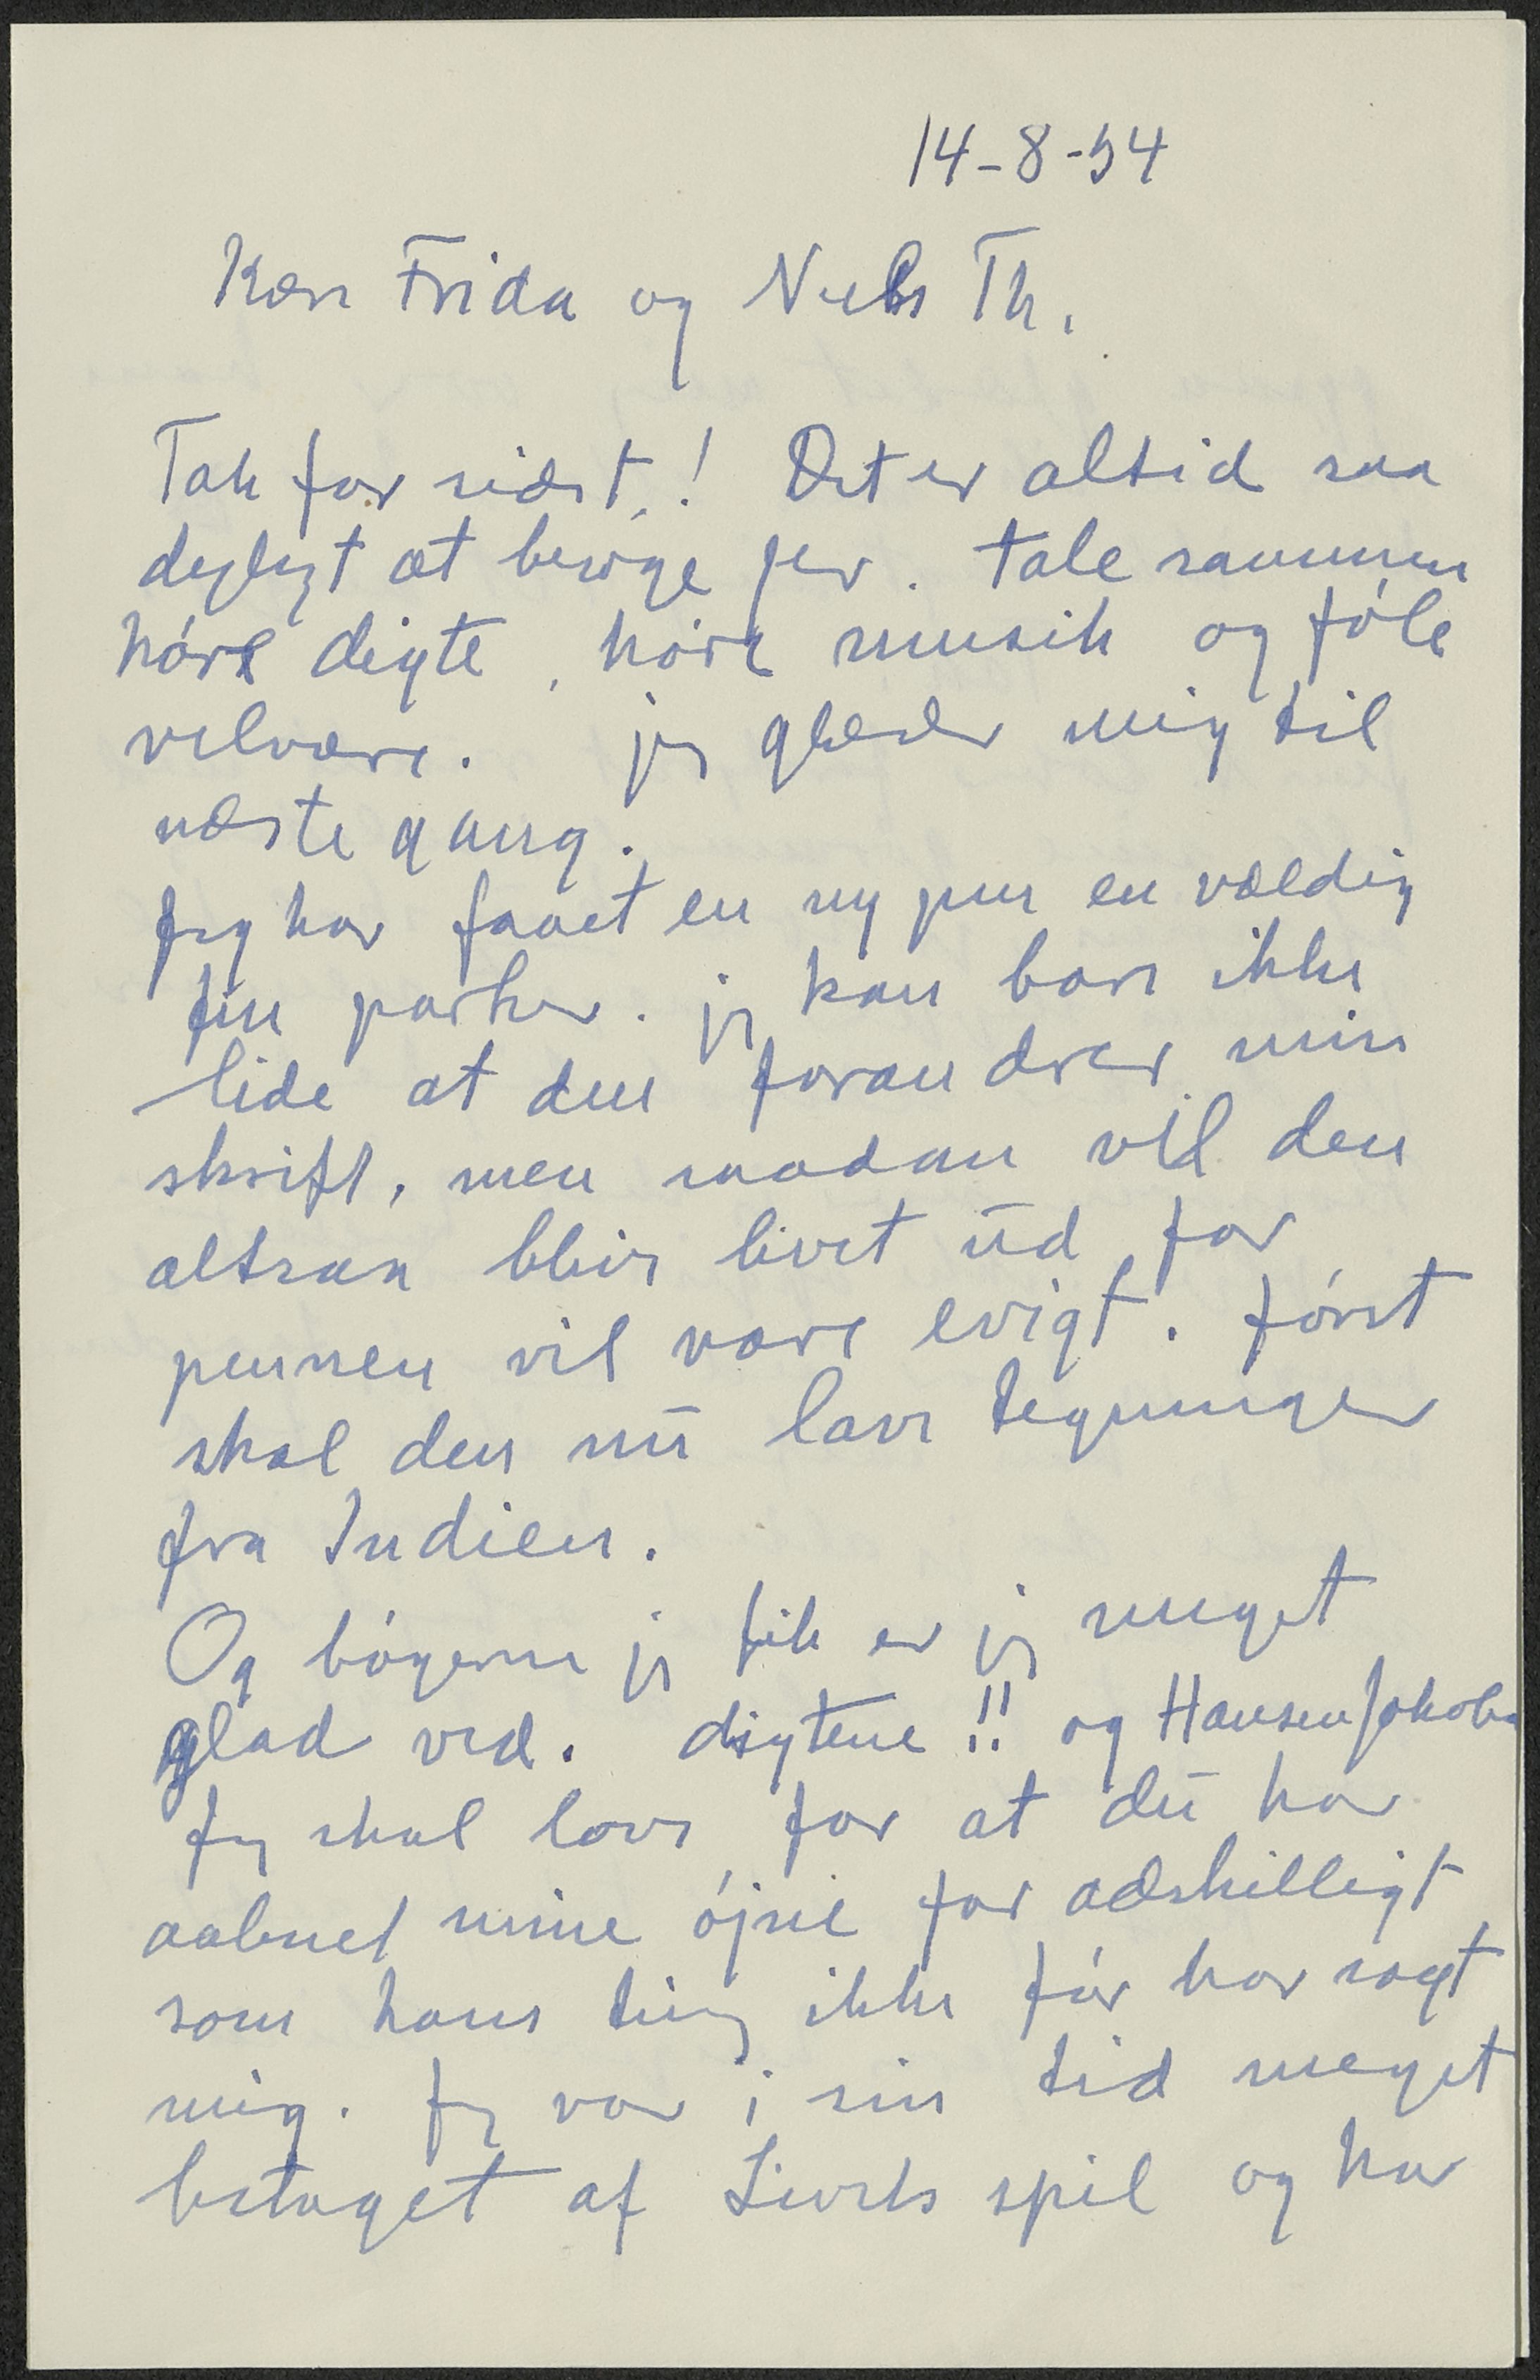 14-8-54
Kære Frida og Niels Th.
Tak for sidst! Det er altid saa
dejligt at besøge jer. tale sammen
høre digte, høre musik og føle
velvære. jeg glæder mig til
næste gang.
Jeg har faaet en ny pen en vældig
fin parker. jeg kan bare ikke
lide at den forandrer min
skrift, men saadan vil den
altsaa blive livet ud for
pennen vil være evigt. først
skal den nu lave tegninger
fra Indien.
Og bøgerne jeg fik er jeg meget
glad ved. digtene!! og Hansen Jakobs
Jeg skal love for at du har
aabnet mine øjne for adskilligt
som hans ting ikke før har sagt
mig. Jeg var i sin tid meget
betaget af Livets spil og har